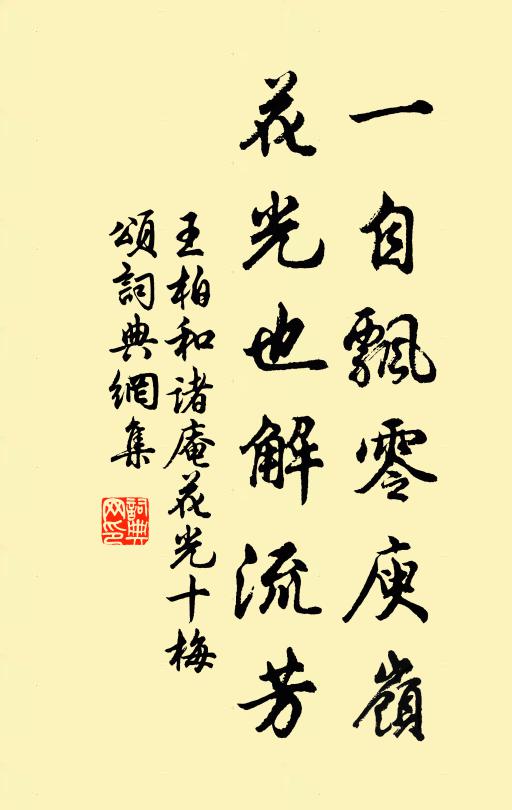 一自飄零庾嶺
花光也解流芳
王柏和諸庵花光十梅
頌詞典網集
詞典
网印